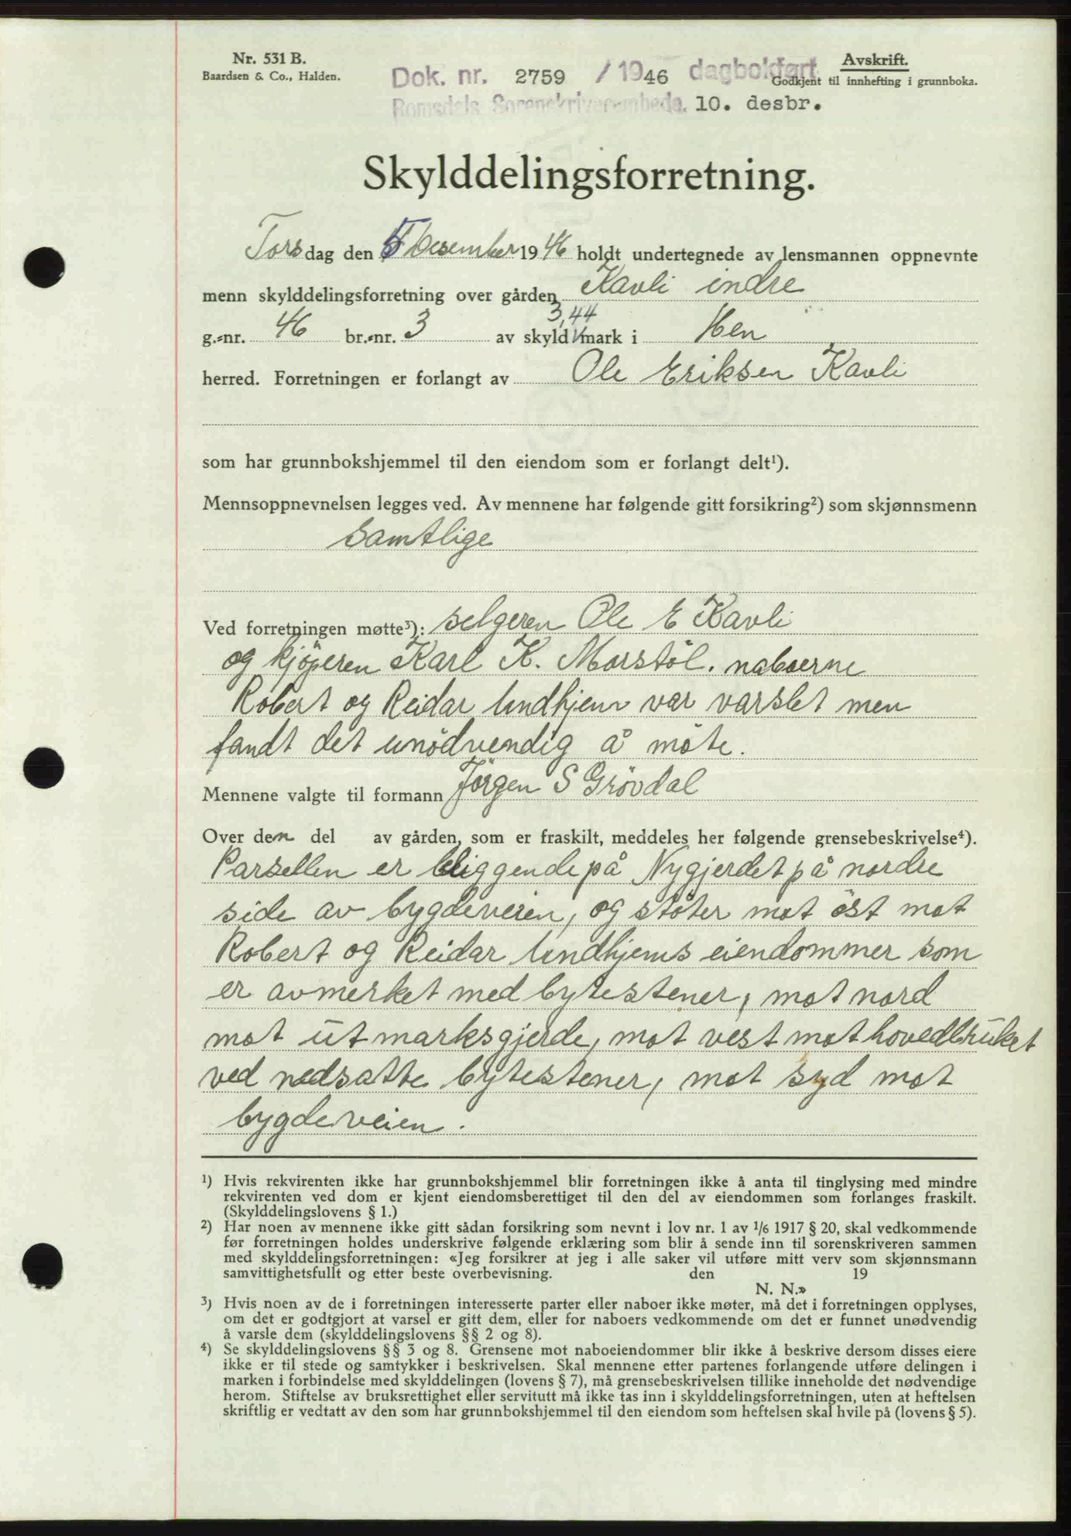 Nr. 531 B.
Baardsen & Co., Halden.
Dok. nr. 2759 / 1946 dagbokført
Avskrift.
Godkjent til innhefting i grunnboka.
Romsdals Sorenskriverembede. 10. desbr.
Skylddelingsforretning.
Torsdag den 5 Desember 1946 holdt undertegnede av lensmannen oppnevnte
menn skylddelingsforretning over gården Kavli indre
g.-nr. 46 br.-nr. 3 av skyld 3,44 mark i Hen
herred. Forretningen er forlangt av Ole Eriksen Kavli
som har grunnbokshjemmel til den eiendom som er forlangt delt¹).
Mennsoppnevnelsen legges ved. Av mennene har følgende gitt forsikring²) som skjønnsmenn
samtlige
Ved forretningen møtte³): selgeren Ole E Kavli
og kjöperen Karl K. Morstöl. naboerne
Robert og Reidar Undhjem var varslet men
fandt det unödvendig å möte.
Mennene valgte til formann Jörgen S Grövdal
Over den del av gården, som er fraskilt, meddeles her følgende grensebeskrivelse⁴).
Parsellen er beliggende på Nygjerdet på nordre
side av bygdeveien, og stöter mot öst mot
Robert og Reidar Undhjems eiendommer som
er avmerket med bytestener, mot nord
mot utmarksgjerde, mot vest mot hovedbruket
ved nedsatte bytestener, mot syd mot
bygdeveien.
¹) Hvis rekvirenten ikke har grunnbokshjemmel blir forretningen ikke å anta til tinglysing med mindre
rekvirenten ved dom er kjent eiendomsberettiget til den del av eiendommen som forlanges fraskilt.
(Skylddelingslovens § 1.)
²) Har noen av mennene ikke gitt sådan forsikring som nevnt i lov nr. 1 av 1/6 1917 § 20, skal vedkommende
før forretningen holdes underskrive følgende erklæring som blir å sende inn til sorenskriveren sammen
med skylddelingsforretningen: «Jeg forsikrer at jeg i alle saker vil utføre mitt verv som skjønnsmann
samvittighetsfullt og etter beste overbevisning. den 19
N. N.»
³) Hvis noen av de i forretningen interesserte parter eller naboer ikke møter, må det i forretningen opplyses,
om det er godtgjort at varsel er gitt dem, eller for naboers vedkommende om det er funnet unødvendig
å varsle dem (skylddelingslovens §§ 2 og 8).
⁴) Se skylddelingslovens §§ 3 og 8. Grensene mot naboeiendommer blir ikke å beskrive dersom disses eiere
ikke er til stede og samtykker i beskrivelsen. Skal mennene etter partenes forlangende utføre delingen i
marken i forbindelse med skylddelingen (lovens § 7), må grensebeskrivelsen tillike inneholde det nødvendige
herom. Stiftelse av bruksrettighet eller servitutt må ikke tas inn i skylddelingsforretningen, uten at heftelsen
skriftlig er vedtatt av den som har grunnbokshjemmel til den eiendom som heftelsen skal hvile på (lovens § 5).